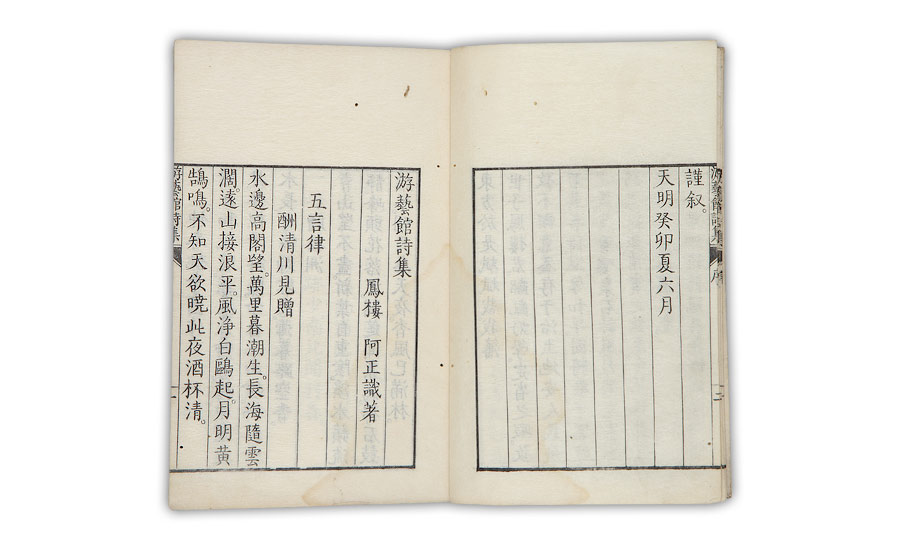 謹叙。
天明癸卯夏六月
游藝館詩集
序
二
游藝館詩集
鳳樓 阿正識著
五言律
酬清川見贈
水邊高閣望。萬里暮潮生。長海隨雲
濶。遠山接浪平。風浄白鷗起。月明黄
鵠鳴。不知天欲暁。此夜酒杯清。
游藝館詩集